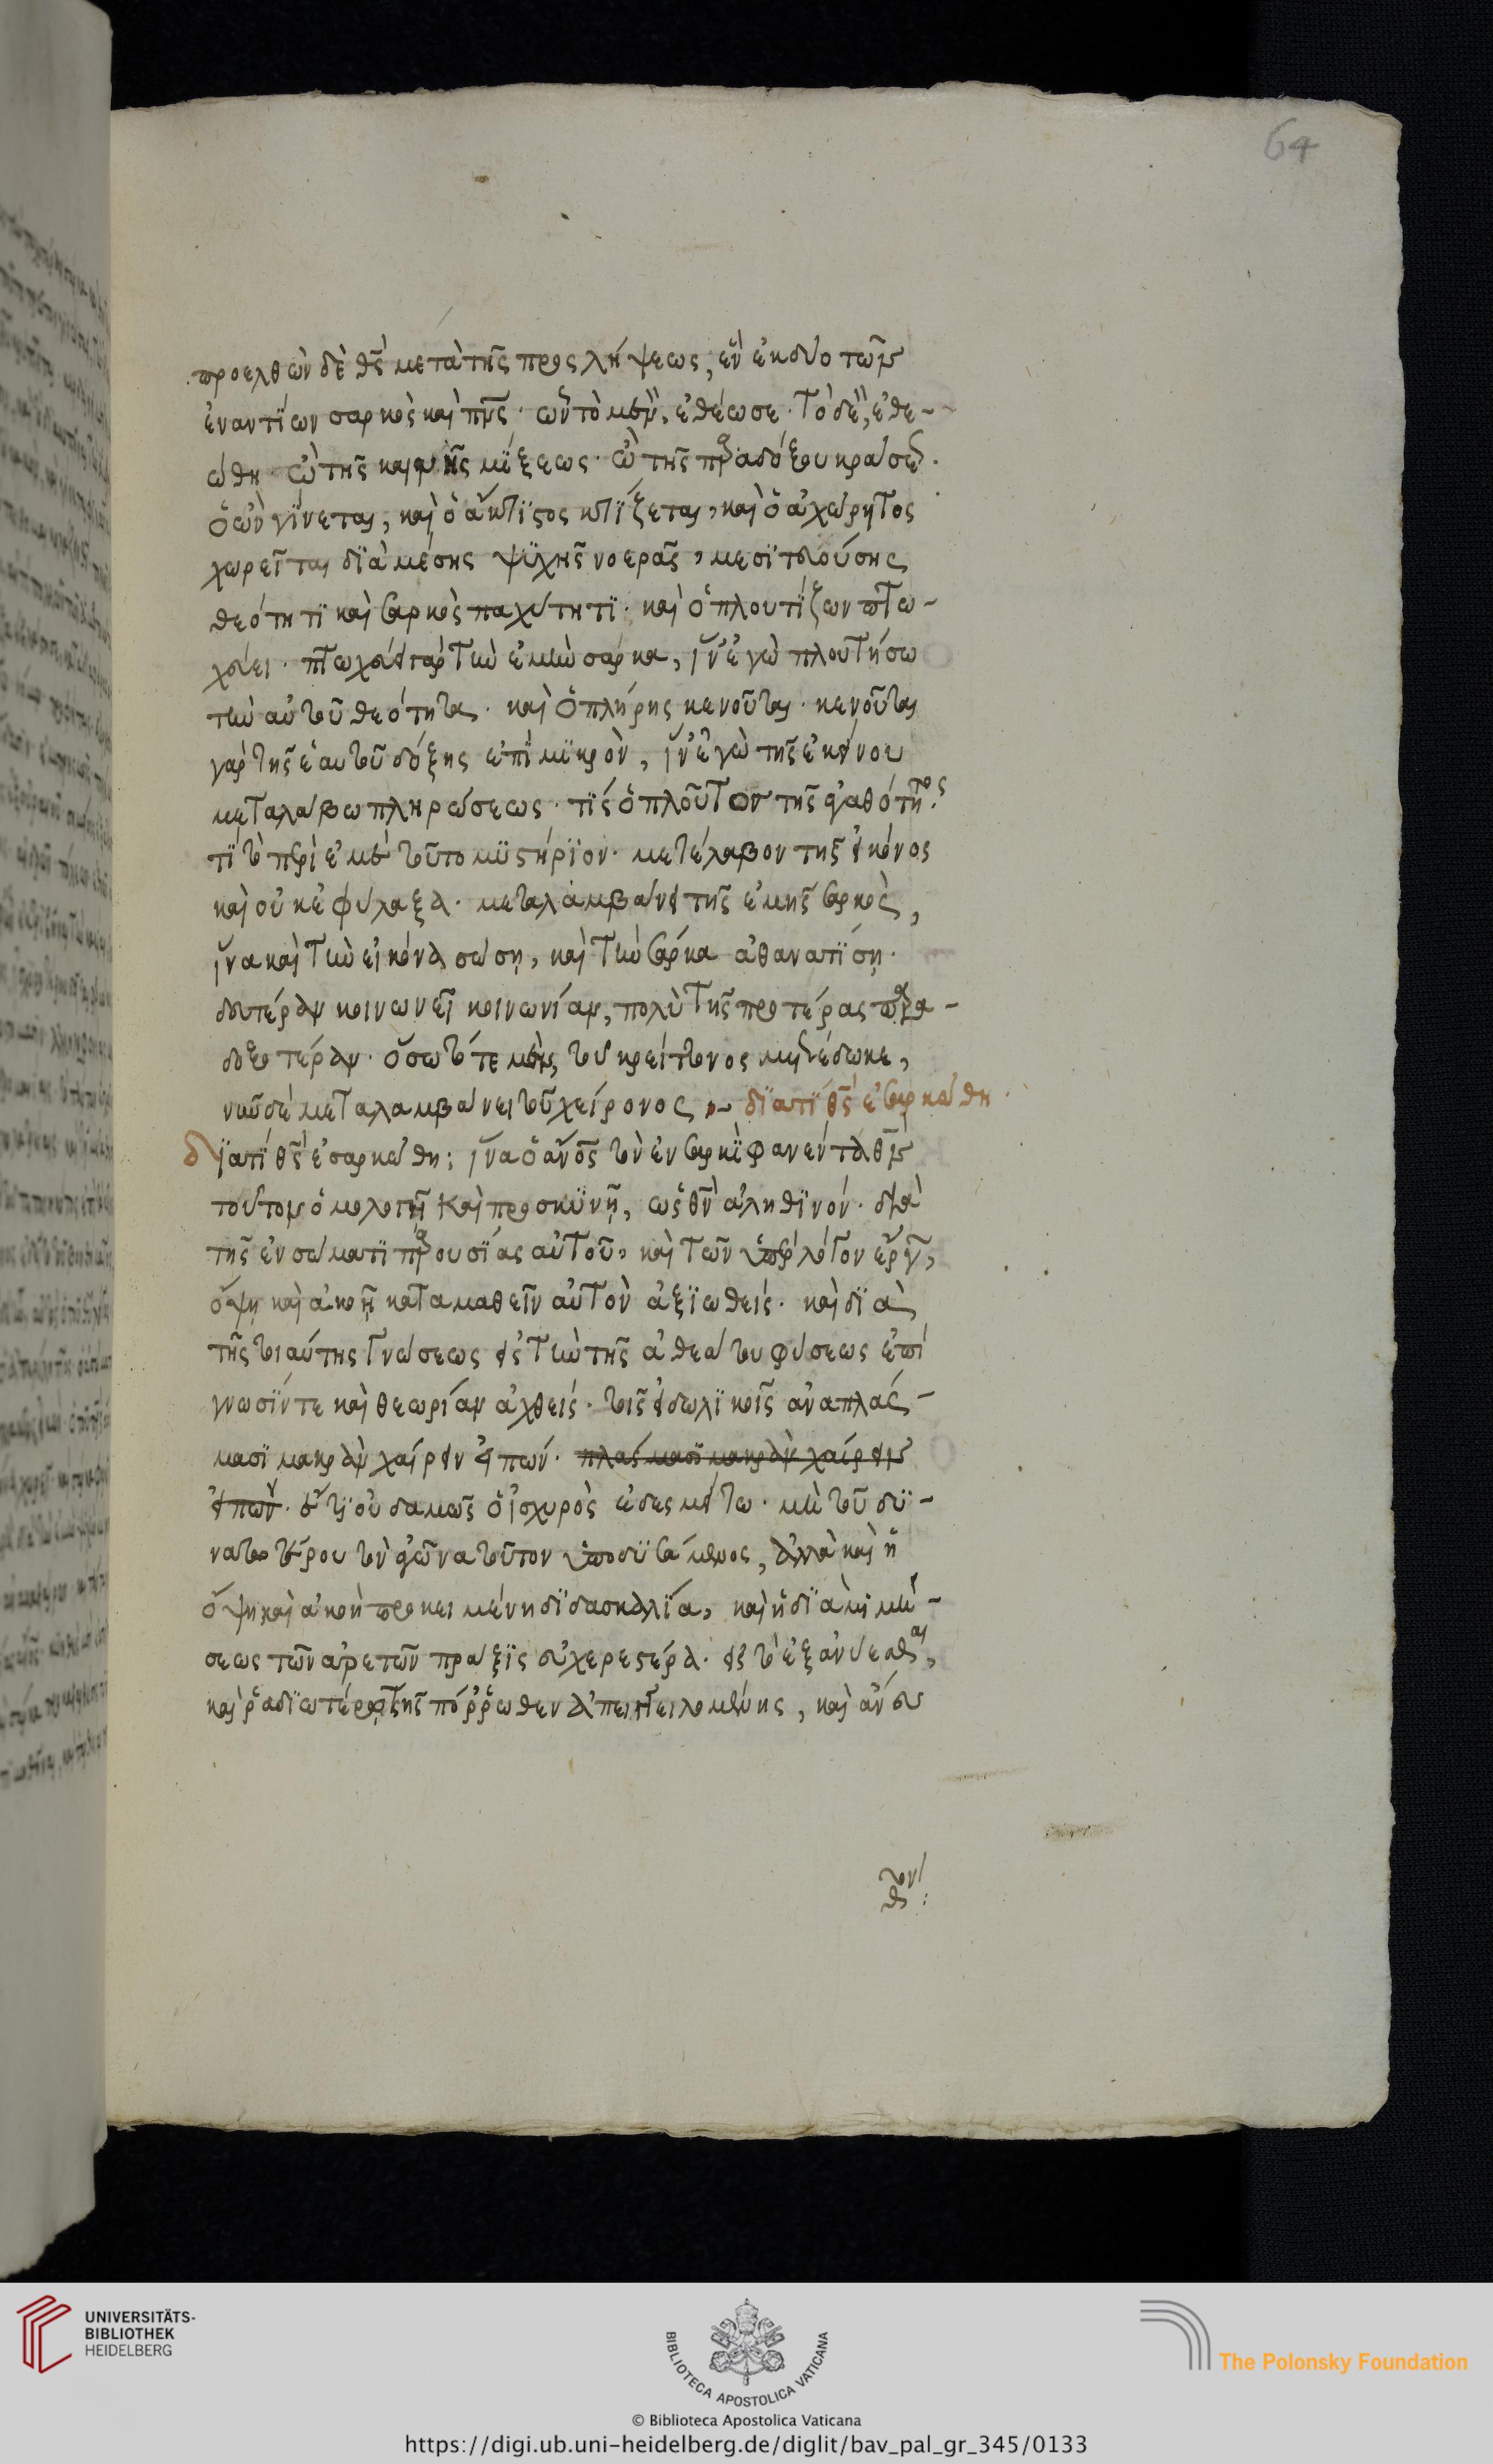 64
προελθὼν δὲ θς μετὰ τῆς προσλήψεως, ἓν ἐκ δύο τῶν
ἐναντίων σαρκὸς καὶ πνς· ὧν τὸ μὲν, ἐθέωσε· τὸ δὲ, ἐθε-
ώθη· ὢ τῆς καινῆς μίξεως· ὢ τῆς παραδόξου κράσεως·
ὁ ὢν γίνεται, καὶ ὁ ἄκτιστος κτίζεται, καὶ ὁ ἀχώρητος
χωρεῖται διὰ μέσης ψυχῆς νοερᾶς, μεσιτευούσης
θεότητι καὶ σαρκὸς παχύτητι· καὶ ὁ πλουτίζων πτω-
χεύει· πτωχεύει γὰρ τὴν ἐμὴν σάρκα, ἵν' ἐγὼ πλουτήσω
τὴν αὐτοῦ θεότητα· καὶ ὁ πλήρης κενοῦται· κενοῦται
γὰρ τῆς ἑαυτοῦ δόξης ἐπὶ μικρὸν, ἵν' ἐγὼ τῆς ἐκείνου
μεταλάβω πληρώσεως· τίς ὁ πλοῦτον τῆς ἀγαθότητος·
τί τὸ περὶ ἐμὲ τοῦτο μυστήριον· μετέλαβον τῆς εἰκόνος
καὶ οὐκ ἐφύλαξα· μεταλαμβάνει τῆς ἐμῆς σαρκὸς,
ἵνα καὶ τὴν εἰκόνα σώσῃ, καὶ τὴν σάρκα ἀθανατίσῃ·
δευτέραν κοινωνεῖ κοινωνίαν, πολὺ τῆς προτέρας παρα-
δοξοτέραν· ὅσω τότε μὲν, τοῦ κρείττονος μετέδωκε,
νῦν δὲ μεταλαμβάνει τοῦ χείρονος :~ διατί θς ἐσαρκώθη·
διατί θς ἐσαρκώθη; ἵνα ὁ ανος τὸν ἐν σαρκὶ φανέντα θν
τοῦτον ὁμολογῇ καὶ προσκυνῇ, ὡς θν ἀληθινόν· διὰ
τῆς ἐν σώματι παρουσίας αὐτοῦ, καὶ τῶν ὑπὲρ λόγον ἔργων,
ὄψῃ καὶ ἀκοῇ καταμαθεῖν αὐτὸν ἀξιωθείς· καὶ διὰ
τῆς τοιαύτης γνώσεως εἰς τὴν τῆς ἀθεάτου φύσεως ἐπί
γνωσίν τε καὶ θεωρίαν ἀχθείς· τοῖς εἰδωλικοῖς ἀναπλάσ-
μασι μακρὰν χαίρειν εἰπών· πλάσμασι μακρὰν χαίρειν
εἰπών· ὅτι οὐδαμῶς ὁ ἰσχυρὸς ἐδεσμεῖτο· μὴ τοῦ δυ-
νατωτέρου τὸν ἀγῶνα τοῦτον ὑποδυσαμένος, ἀλλὰ καὶ ἡ
ὄψη καὶ ἀκοῇ προκειμένη διδασκαλία, καὶ ἡ διὰ μιμή-
σεως τῶν ἀρετῶν πρᾶξις εὐχερεστέρα· εἰς τὸ ἐξανύεσθαι,
καὶ ῥαδιωτέρα τῆς πόρρωθεν ἀπειλομένης, καὶ ἄνευ
τὸν
θν:
UNIVERSITÄTS-
BIBLIOTHEK
HEIDELBERG
BIBLIOTECA APOSTOLICA VATICANA
The Polonsky Foundation
© Biblioteca Apostolica Vaticana
https://digi.ub.uni-heidelberg.de/diglit/bav_pal_gr_345/0133